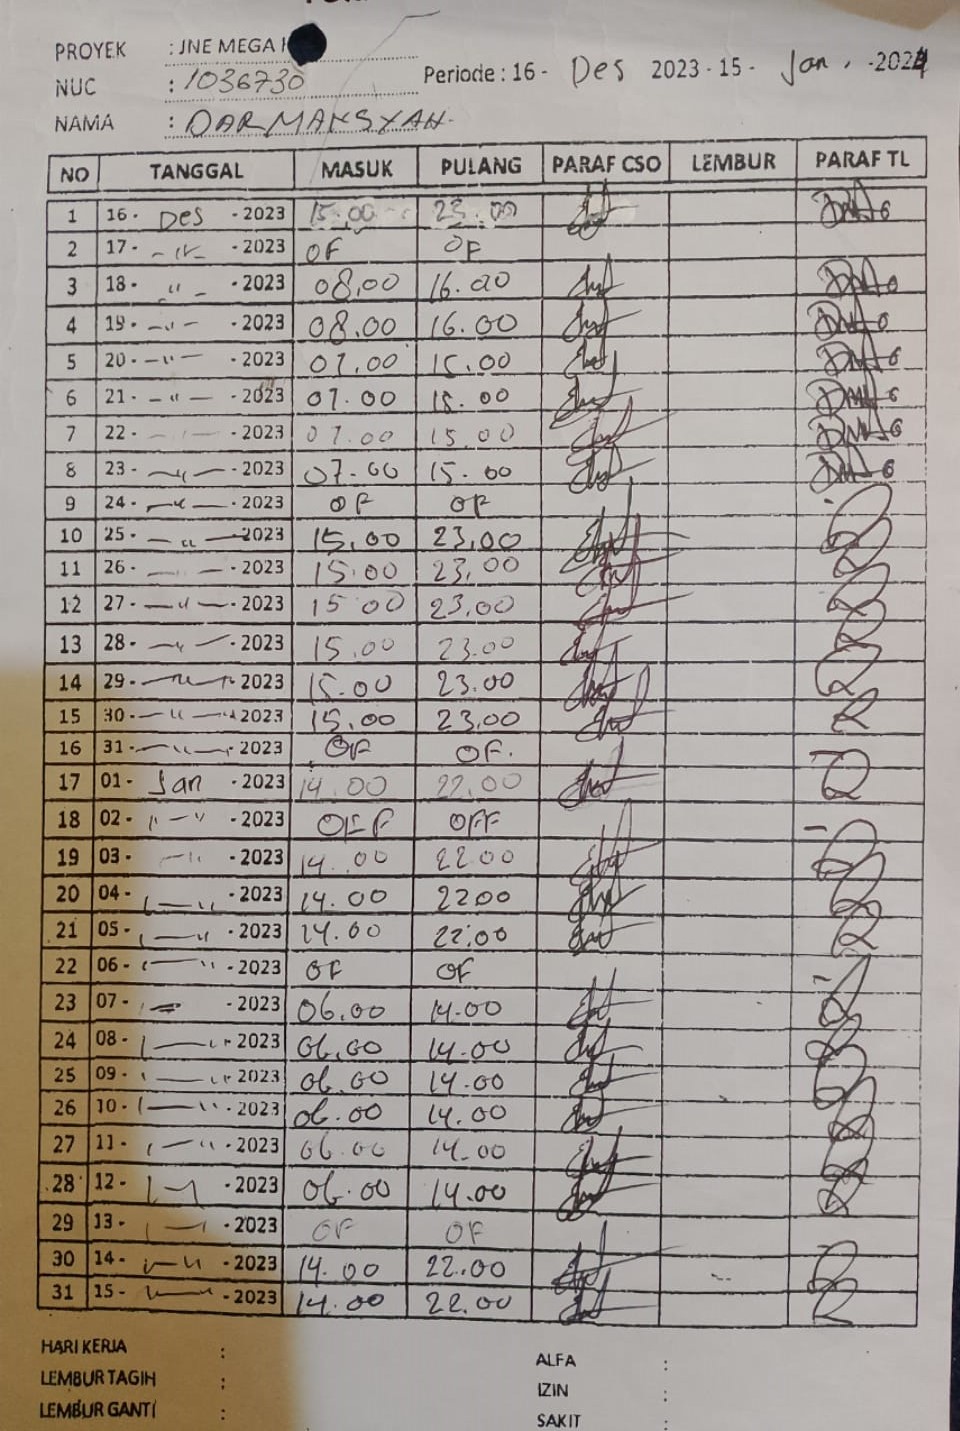 PROYEK : JNE MEGA
NUC : 1036730
Periode : 16 - Des 2023 - 15 - Jan. - 2024
NAMA : DARMAKSYAH
NO TANGGAL MASUK PULANG PARAF CSO LEMBUR PARAF TL
1 16 - Des - 2023 15.00 23.00
2 17 - - 2023 OF OF
3 18 - " - 2023 08.00 16.00
4 19 - " - 2023 08.00 16.00
5 20 - " - 2023 07.00 15.00
6 21 - " - 2023 07.00 15.00
7 22 - - 2023 07.00 15.00
8 23 - " - 2023 07.00 15.00
9 24 - " - 2023 OF OF
10 25 - " - 2023 15.00 23.00
11 26 - - 2023 15.00 23.00
12 27 - " - 2023 15 00 23.00
13 28 - " - 2023 15.00 23.00
14 29 - " - 2023 15.00 23.00
15 30 - " - 2023 15.00 23.00
16 31 - " - 2023 OF OF.
17 01 - Jan - 2023 14.00 22.00
18 02 - " - 2023 OFF OFF
19 03 - " - 2023 14.00 22.00
20 04 - " - 2023 14.00 2200
21 05 - " - 2023 14.00 22.00
22 06 - " - 2023 OF OF
23 07 - - 2023 06.00 14.00
24 08 - " - 2023 06.00 14.00
25 09 - " - 2023 06.00 14.00
26 10 - " - 2023 06.00 14.00
27 11 - " - 2023 06.00 14.00
28 12 - - 2023 06.00 14.00
29 13 - - 2023 OF OF
30 14 - " - 2023 14.00 22.00
31 15 - - 2023 14.00 22.00
HARI KERJA :
ALFA :
LEMBUR TAGIH :
IZIN :
LEMBUR GANTI :
SAKIT :